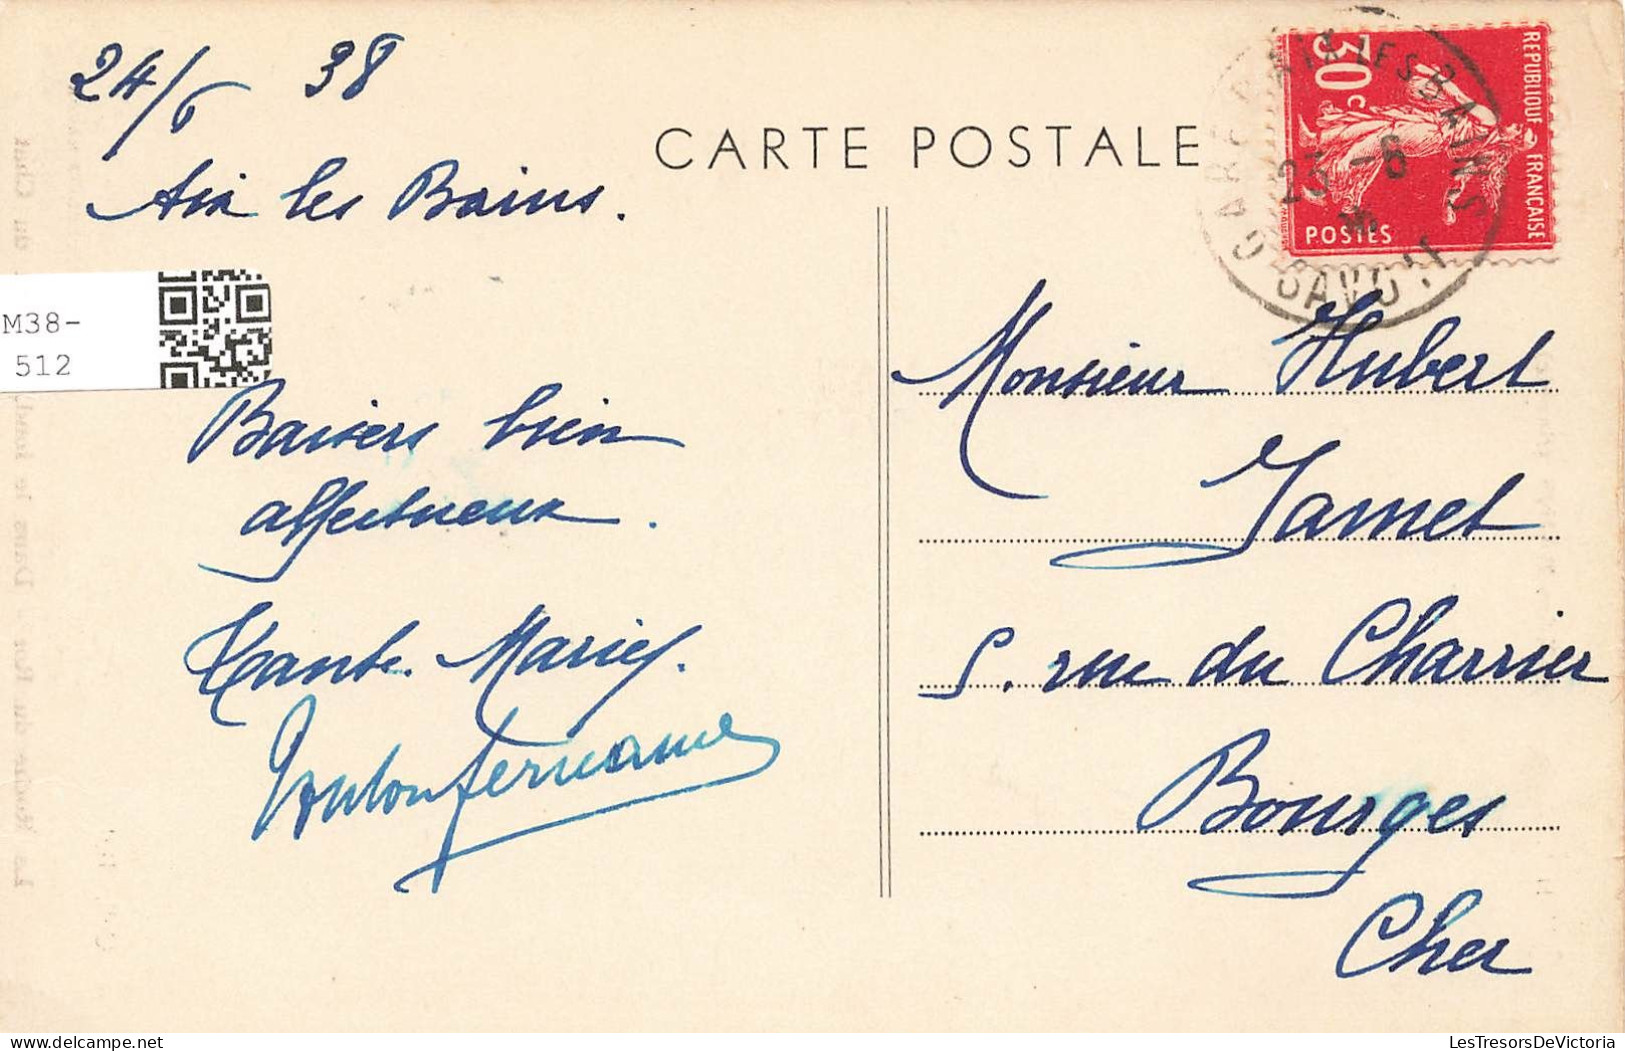 24/6 38
Aix les Bains.
CARTE POSTALE
30c
REPUBLIQUE FRANÇAISE
POSTES
AIX LES BAINS
GARE
SAVOIE
-6
M38-
512
Baisers bien
affectueux.
Tante Marie.
Monsieur Hubert
Jamet
5. rue du Charrier
Bourges
Cher
delcampe.net
LesTresorsDeVictoria